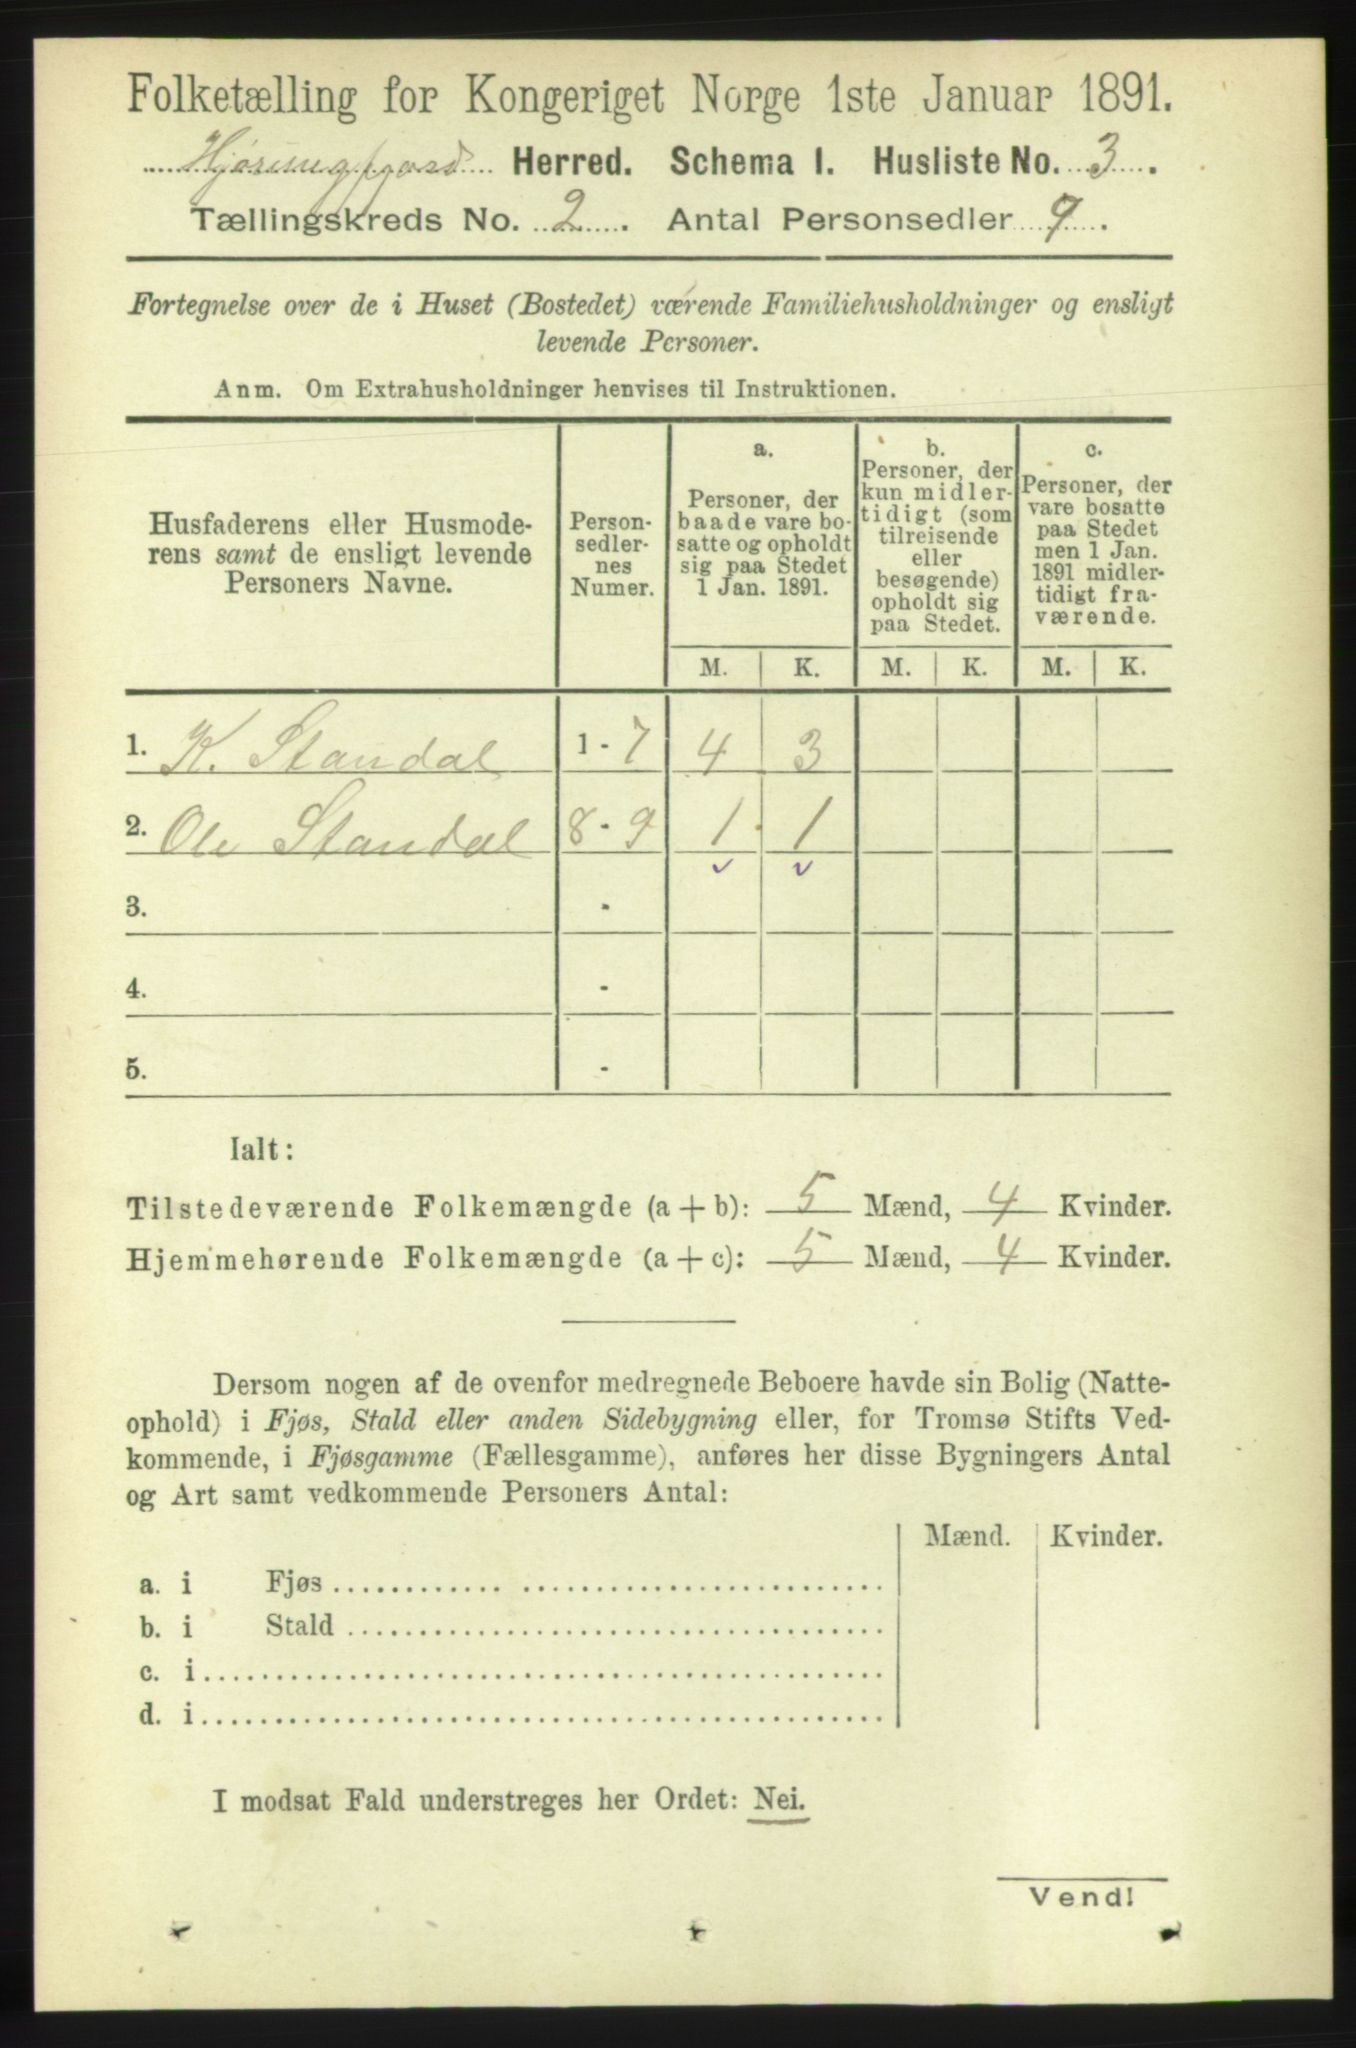 Folketælling for Kongeriget Norge 1ste Januar 1891.
Hjørungfjord Herred. Schema I. Husliste No. 3.
Tællingskreds No. 2. Antal Personsedler 9.
Fortegnelse over de i Huset (Bostedet) værende Familiehusholdninger og ensligt
levende Personer.
Anm. Om Extrahusholdninger henvises til Instruktionen.
Husfaderens eller Husmode-
rens samt de ensligt levende
Personers Navne.
Person-
sedler-
nes
Numer.
a.
Personer, der
baade vare bo-
satte og opholdt
sig paa Stedet
1 Jan. 1891.
b.
Personer, der
kun midler-
tidigt (som
tilreisende
eller
besøgende)
opholdt sig
paa Stedet.
c.
Personer, der
vare bosatte
paa Stedet
men 1 Jan.
1891 midler-
tidigt fra-
værende.
M. K. M. K. M. K.
1. K. Standal 1 - 7 4 3
2. Ole Standal 8 - 9 1 1
3. -
4. -
5. -
Ialt:
Tilstedeværende Folkemængde (a + b): 5 Mænd, 4 Kvinder.
Hjemmehørende Folkemængde (a + c): 5 Mænd, 4 Kvinder.
Dersom nogen af de ovenfor medregnede Beboere havde sin Bolig (Natte-
ophold) i Fjøs, Stald eller anden Sidebygning eller, for Tromsø Stifts Ved-
kommende, i Fjøsgamme (Fællesgamme), anføres her disse Bygningers Antal
og Art samt vedkommende Personers Antal:
Mænd. Kvinder.
a. i Fjøs
b. i Stald
c. i
d. i
I modsat Fald understreges her Ordet: Nei.
Vend!